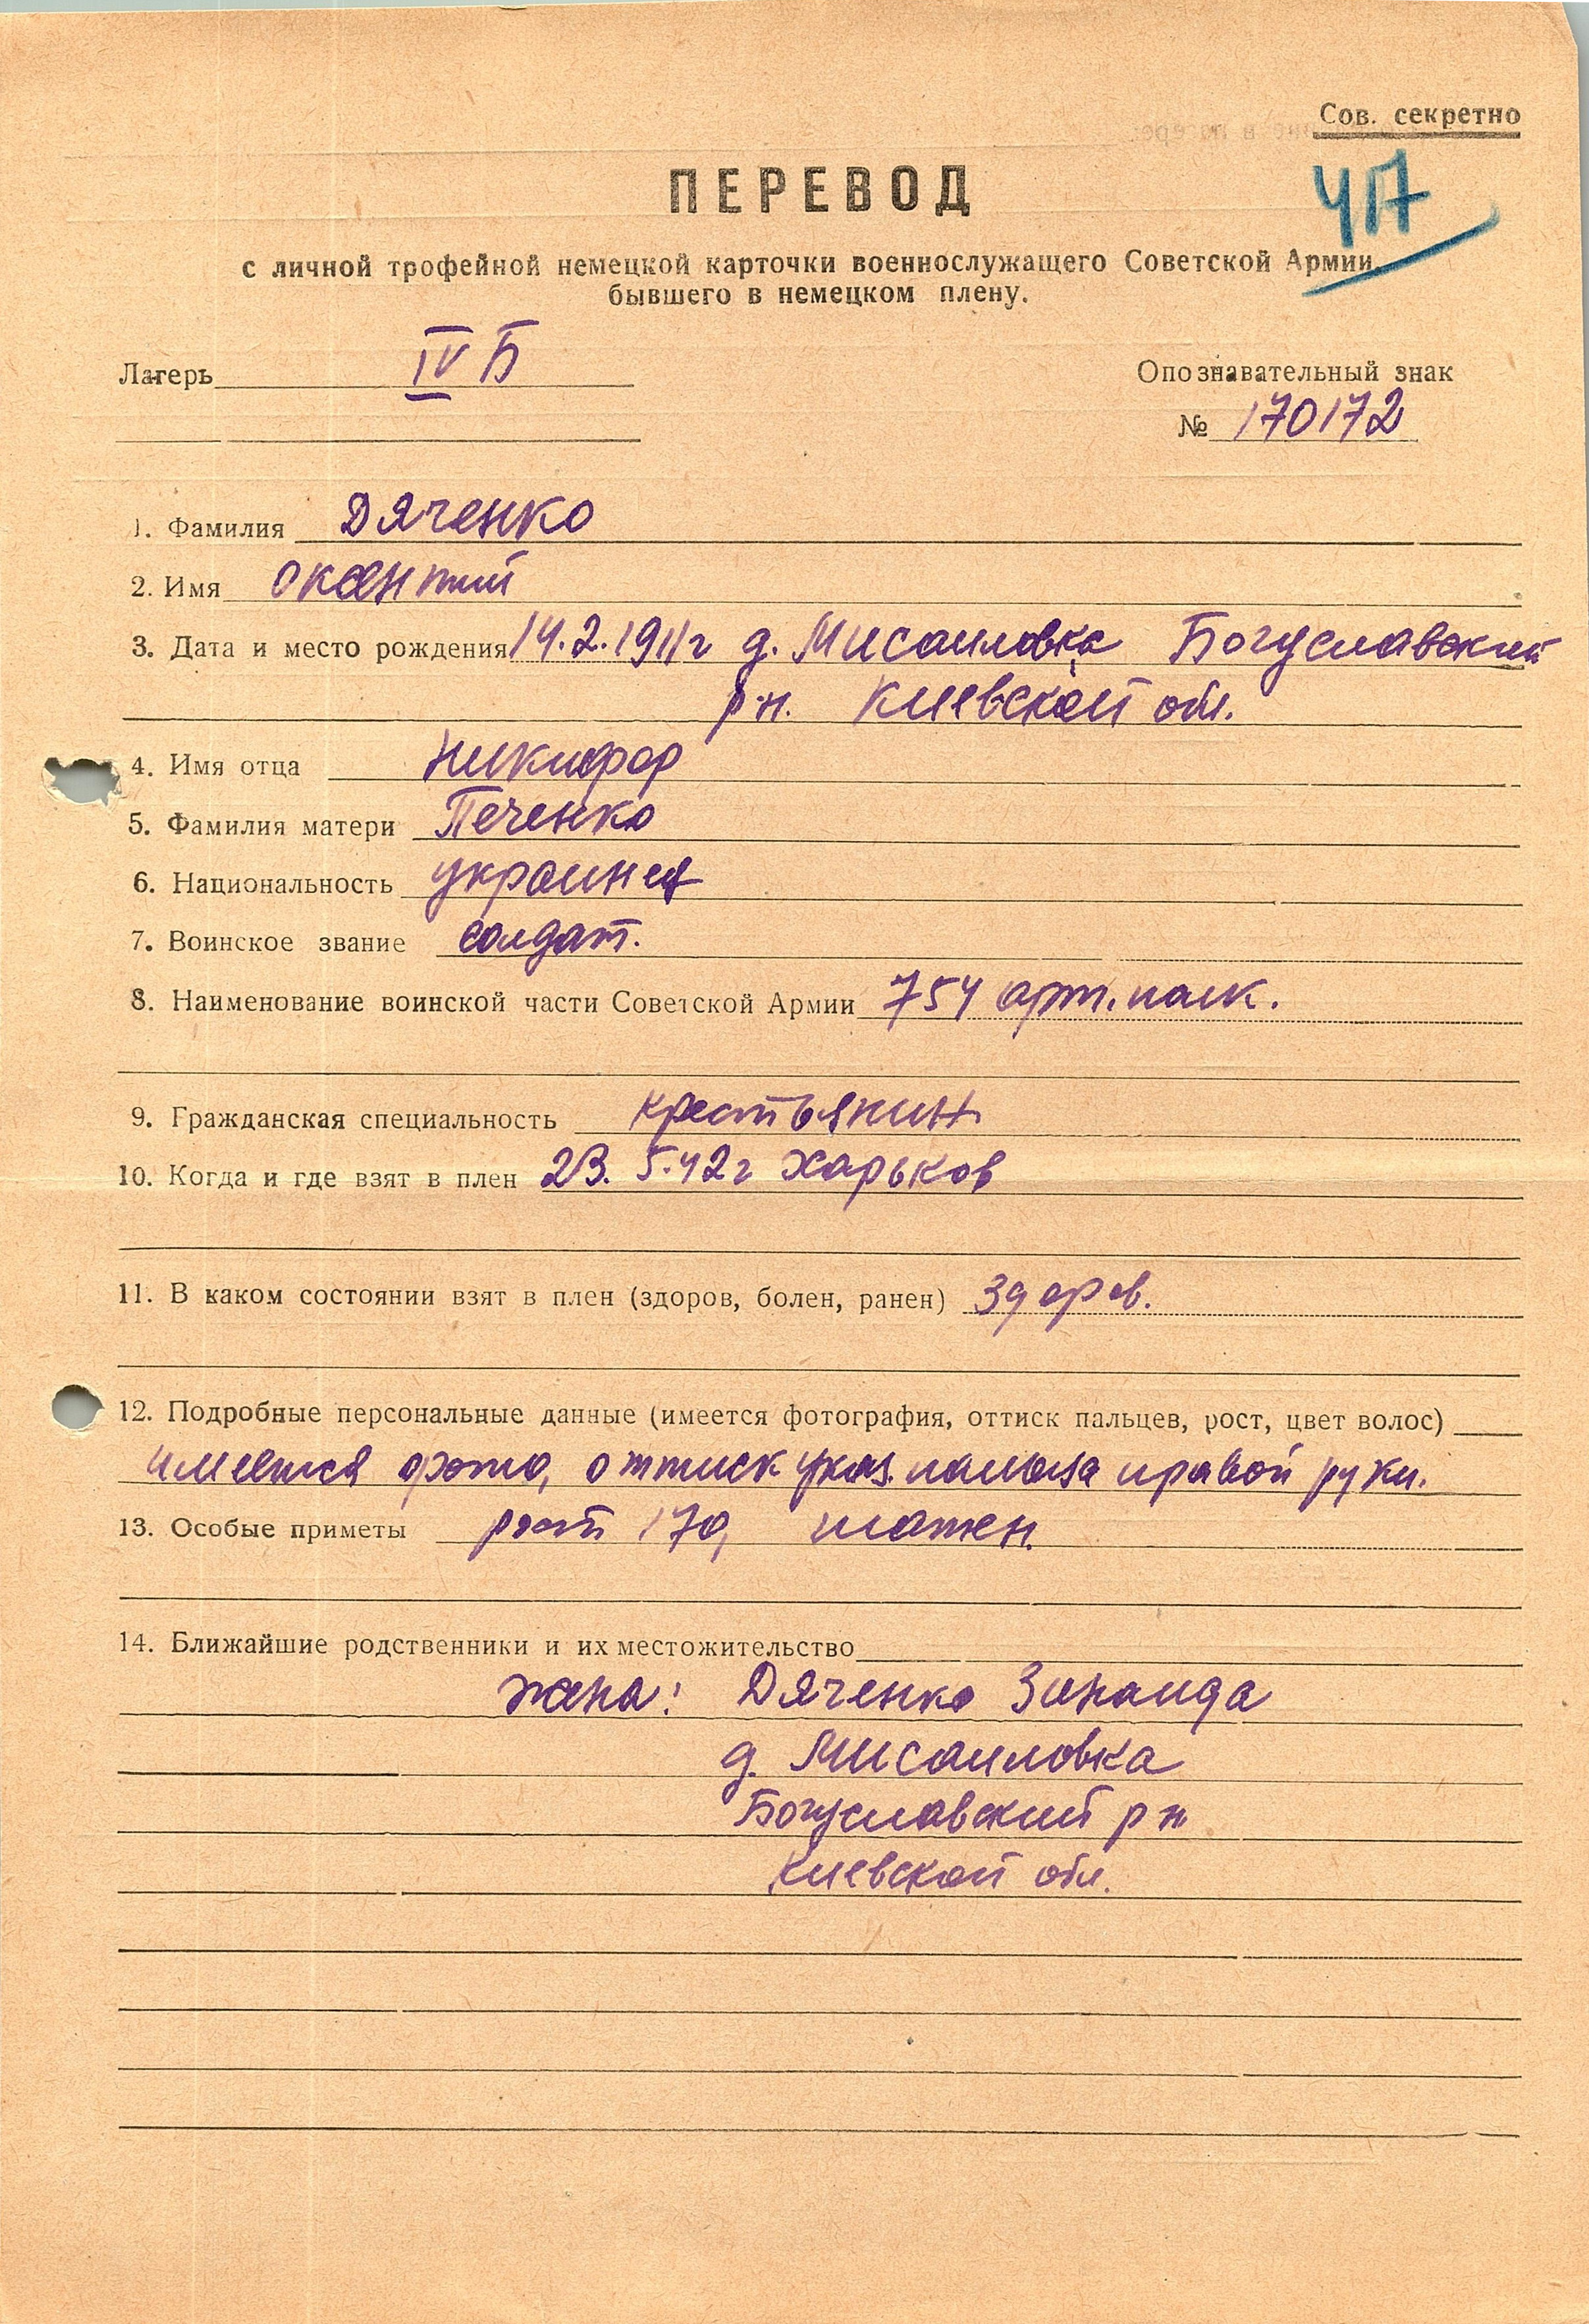 Сов. секретно
ПЕРЕВОД
с личной трофейной немецкой карточки военнослужащего Советской Армии,
бывшего в немецком плену.
Лагерь IV Б
Опознавательный знак
№ 170172
1. Фамилия Дяченко
2. Имя Оксентий
3. Дата и место рождения 14.2.1911г д. Мисаиловка Богуславский
р-н. Киевской обл.
4. Имя отца Никифор
5. Фамилия матери Печенко
6. Национальность украинец
7. Воинское звание солдат.
8. Наименование воинской части Советской Армии 754 арт. полк.
9. Гражданская специальность крестьянин
10. Когда и где взят в плен 23. 5.42г Харьков
11. В каком состоянии взят в плен (здоров, болен, ранен) здоров.
12. Подробные персональные данные (имеется фотография, оттиск пальцев, рост, цвет волос)
имеется фото, оттиск указ. пальца правой руки.
13. Особые приметы рост 170,
14. Ближайшие родственники и их местожительство
жена: Дяченко Зинаида
д. Мисаиловка
Богуславский р н
Киевской обл.